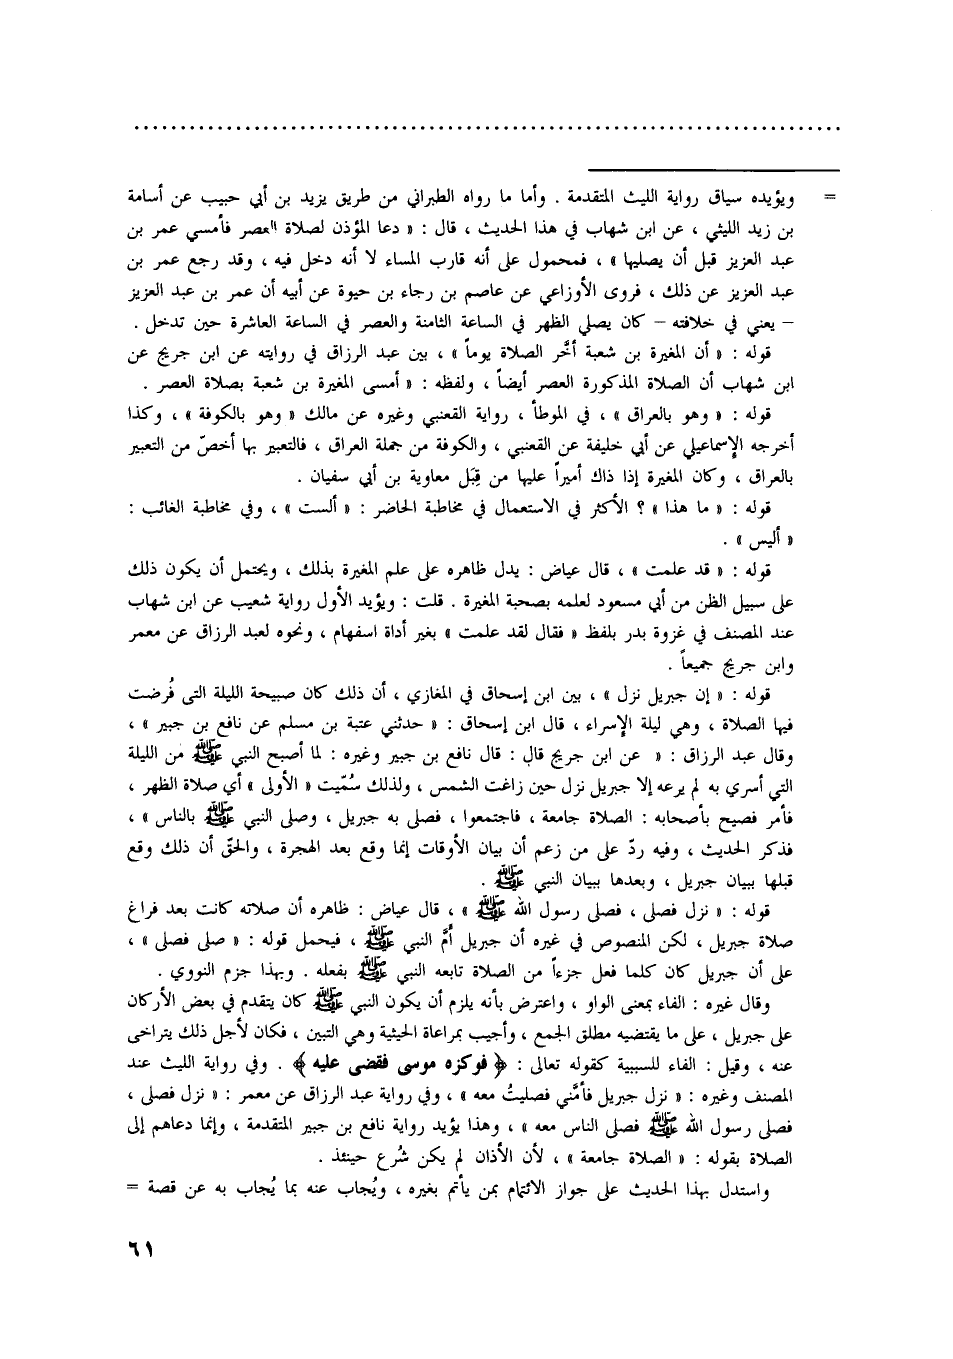 = ويؤيده سياق رواية الليث المتقدمة . وأما ما رواه الطبراني من طريق يزيد بن أبي حبيب عن أسامة
بن زيد الليثي ، عن ابن شهاب في هذا الحديث ، قال : « دعا المؤذن لصلاة العصر فأمسي عمر بن
عبد العزيز قبل أن يصليها » ، فمحمول على أنه قارب المساء لا أنه دخل فيه ، وقد رجع عمر بن
عبد العزيز عن ذلك ، فروى الأوزاعي عن عاصم بن رجاء بن حيوة عن أبيه أن عمر بن عبد العزيز
– يعني في خلافته – كان يصلي الظهر في الساعة الثامنة والعصر في الساعة العاشرة حين تدخل .
قوله : « أن المغيرة بن شعبة أخَّر الصلاة يوماً » ، بين عبد الرزاق في روايته عن ابن جريج عن
ابن شهاب أن الصلاة المذكورة العصر أيضاً ، ولفظه : « أمسى المغيرة بن شعبة بصلاة العصر .
قوله : « وهو بالعراق » ، في الموطأ ، رواية القعنبي وغيره عن مالك « وهو بالكوفة » ، وكذا
أخرجه الإسماعيلي عن أبي خليفة عن القعنبي ، والكوفة من جملة العراق ، فالتعبير بها أخصّ من التعبير
بالعراق ، وكان المغيرة إذا ذاك أميراً عليها من قِبَل معاوية بن أبي سفيان .
قوله : « ما هذا » ؟ الأكثر في الاستعمال في مخاطبة الحاضر : « ألست » ، وفي مخاطبة الغائب :
« أليس » .
قوله : « قد علمت » ، قال عياض : يدل ظاهره على علم المغيرة بذلك ، ويحتمل أن يكون ذلك
على سبيل الظن من أبي مسعود لعلمه بصحبة المغيرة . قلت : ويؤيد الأول رواية شعيب عن ابن شهاب
عند المصنف في غزوة بدر بلفظ « فقال لقد علمت » بغير أداة اسفهام ، ونحوه لعبد الرزاق عن معمر
وابن جريج جميعاً .
قوله : « إن جبريل نزل » ، بين ابن إسحاق في المغازي ، أن ذلك كان صبيحة الليلة التى فُرضت
فيها الصلاة ، وهي ليلة الإسراء ، قال ابن إسحاق : « حدثني عتبة بن مسلم عن نافع بن جبير » ،
وقال عبد الرزاق : « عن ابن جريج قال : قال نافع بن جبير وغيره : لما أصبح النبي ﷺ من الليلة
التي أسري به لم يرعه إلا جبريل نزل حين زاغت الشمس ، ولذلك سُمّيت « الأولى » أي صلاة الظهر ،
فأمر فصيح بأصحابه : الصلاة جامعة ، فاجتمعوا ، فصلى به جبريل ، وصلى النبي ﷺ بالناس » ،
فذكر الحديث ، وفيه ردّ على من زعم أن بيان الأوقات إنما وقع بعد الهجرة ، والحقّ أن ذلك وقع
قبلها ببيان جبريل ، وبعدها ببيان النبي ﷺ .
قوله : « نزل فصلى ، فصلى رسول الله ﷺ » ، قال عياض : ظاهره أن صلاته كانت بعد فراغ
صلاة جبريل ، لكن المنصوص في غيره أن جبريل أمَّ النبي ﷺ ، فيحمل قوله : « صلى فصلى » ،
على أن جبريل كان كلما فعل جزءاً من الصلاة تابعه النبي ﷺ بفعله . وبهذا جزم النووي .
وقال غيره : الفاء بمعنى الواو ، واعترض بأنه يلزم أن يكون النبي ﷺ كان يتقدم في بعض الأركان
على جبريل ، على ما يقتضيه مطلق الجمع ، وأجيب بمراعاة الحيثية وهي التبين ، فكان لأجل ذلك يتراخى
عنه ، وقيل : الفاء للسببية كقوله تعالى : ﴿ فوكزه موسى فقضى عليه ﴾ . وفي رواية الليث عند
المصنف وغيره : « نزل جبريل فأمَّني فصليتُ معه » ، وفي رواية عبد الرزاق عن معمر : « نزل فصلى ،
فصلى رسول الله ﷺ فصلى الناس معه » ، وهذا يؤيد رواية نافع بن جبير المتقدمة ، وإنما دعاهم إلى
الصلاة بقوله : « الصلاة جامعة » ، لأن الأذان لم يكن شُرع حينئذ .
واستدل بهذا الحديث على جواز الائتمام بمن يأتم بغيره ، ويُجاب عنه بما يُجاب به عن قصة =
٦١